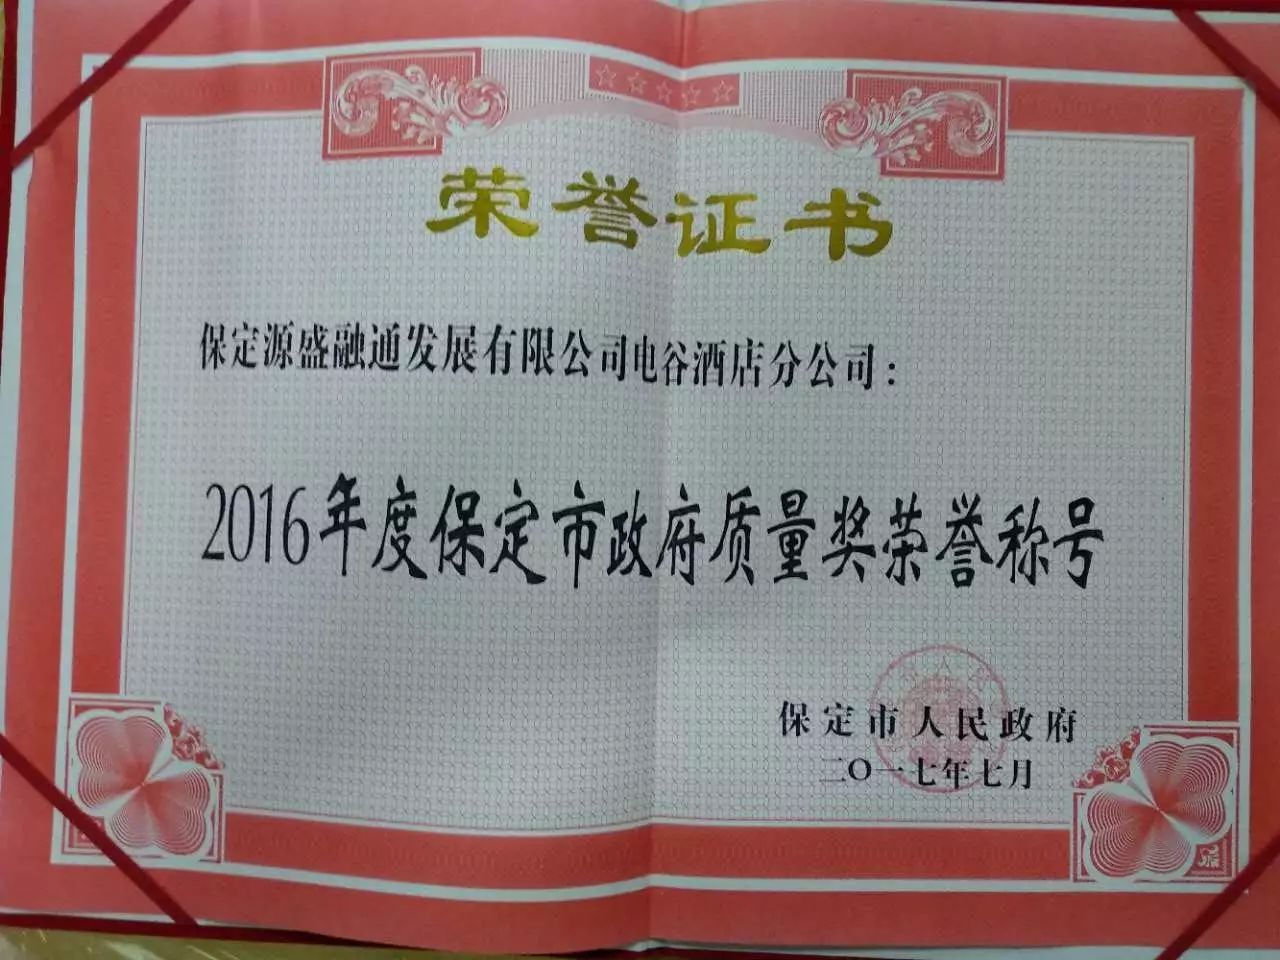 荣誉证书
保定源盛融通发展有限公司电谷酒店分公司：
2016年度保定市政府质量奖荣誉称号
保定市人民政府
二〇一七年七月